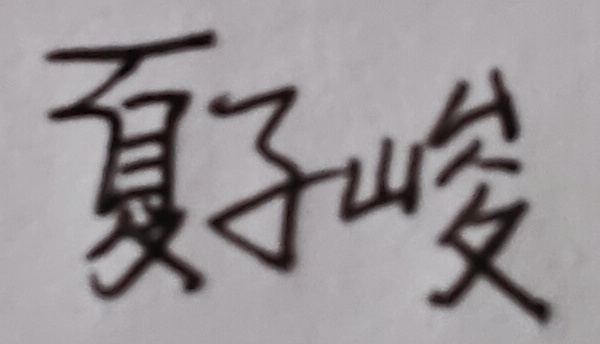 夏子峻